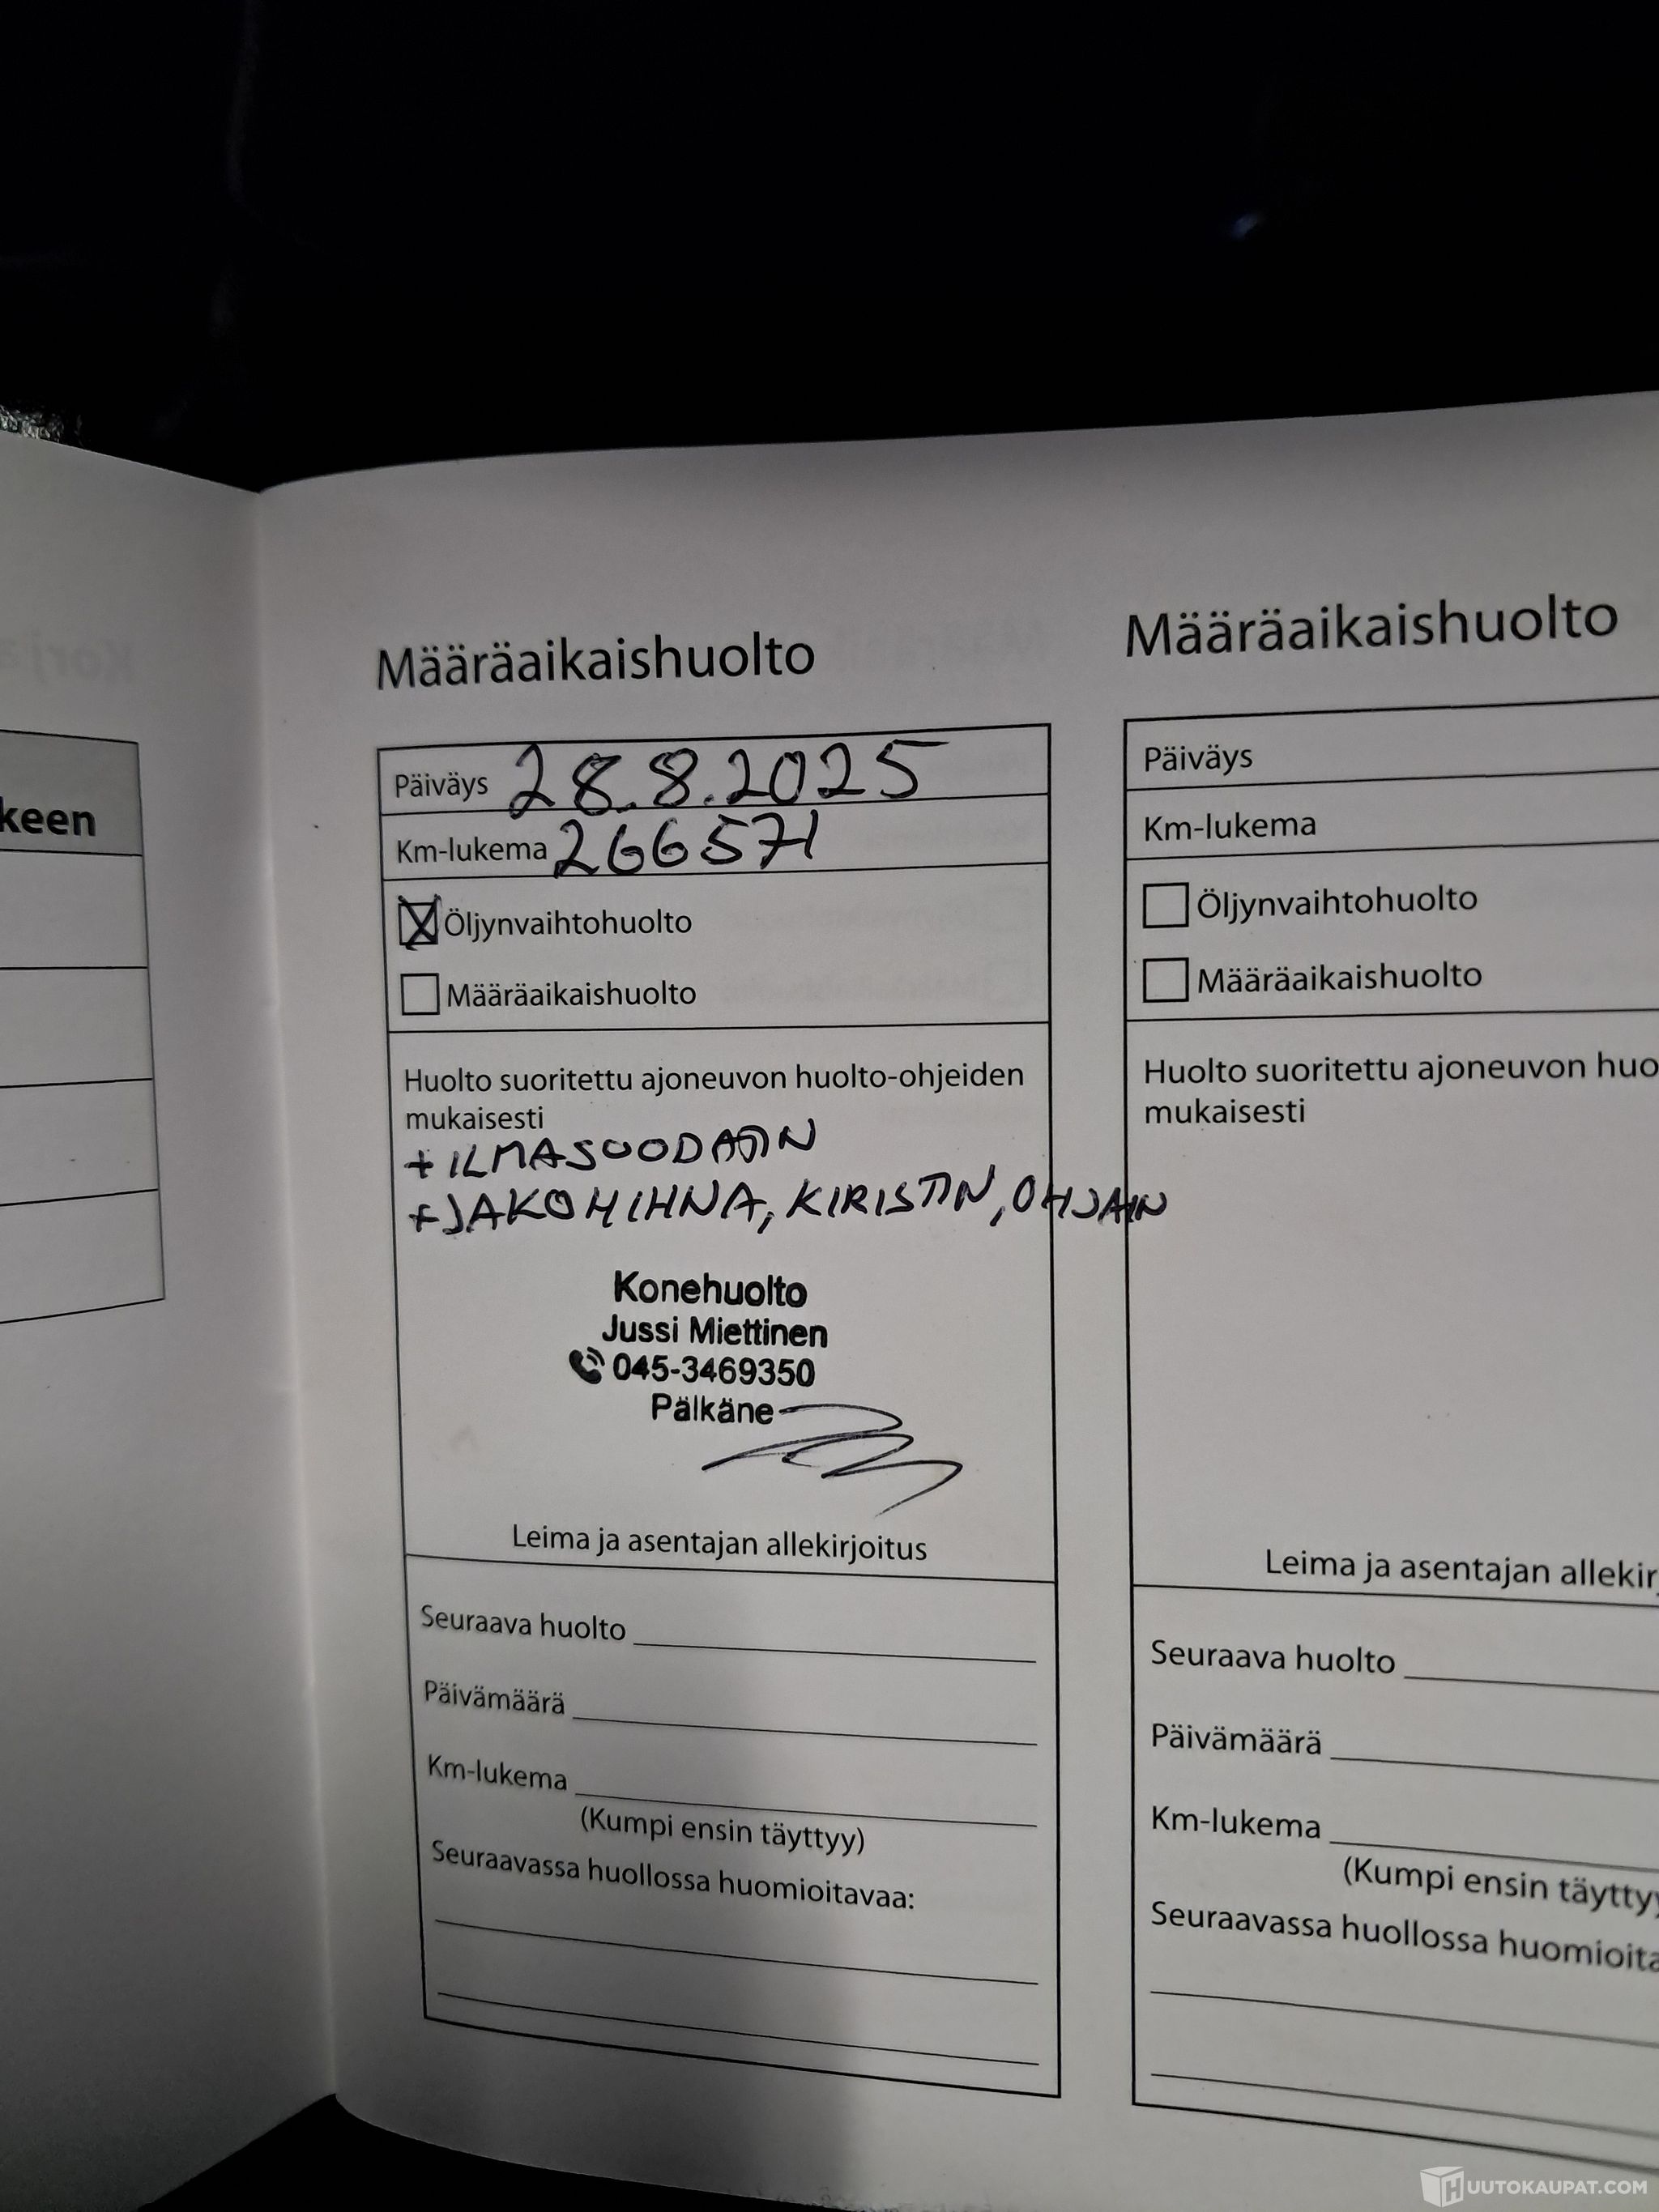 keen
Määräaikaishuolto
Päiväys 28.8.2025
Km-lukema 266571
Öljynvaihtohuolto
Määräaikaishuolto
Huolto suoritettu ajoneuvon huolto-ohjeiden
mukaisesti
+ ILMASUODATIN
+ JAKOHIHNA, KIRISTIN, OHJAIN
Konehuolto
Jussi Miettinen
045-3469350
Pälkäne
Leima ja asentajan allekirjoitus
Seuraava huolto
Päivämäärä
Km-lukema
(Kumpi ensin täyttyy)
Seuraavassa huollossa huomioitavaa:
Määräaikaishuolto
Päiväys
Km-lukema
Öljynvaihtohuolto
Määräaikaishuolto
Huolto suoritettu ajoneuvon huo
mukaisesti
Leima ja asentajan allekir
Seuraava huolto
Päivämäärä
Km-lukema
(Kumpi ensin täyttyy
Seuraavassa huollossa huomioita
HUUTOKAUPAT.COM